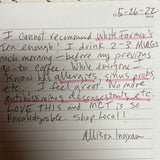 5-26-22
I cannot recommend White Farms's
Tea enough! I drink 2-3 MUGS
each morning - before my previous
go-to coffee. While everyone I
know has allergies, sinus probs,
etc., I feel great. No more
antihistamines, decongestants, etc.
LOVE THIS and MCT is so
knowledgable. Shop local!
Allison Ingram